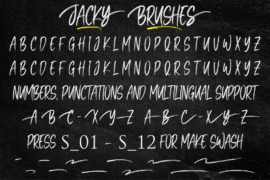 JACKY BRUSHES
ABCDEFGHIJKLMNOPQRSTUVWXYZ
ABCDEFGHIJKLMNOPQRSTUVWXYZ
NUMBERS, PUNCTATIONS AND MULTILINGUAL SUPPORT
A-B-C-X-Y-Z A-B-C-X-Y-Z
PRESS S_01 - S_12 FOR MAKE SWASH